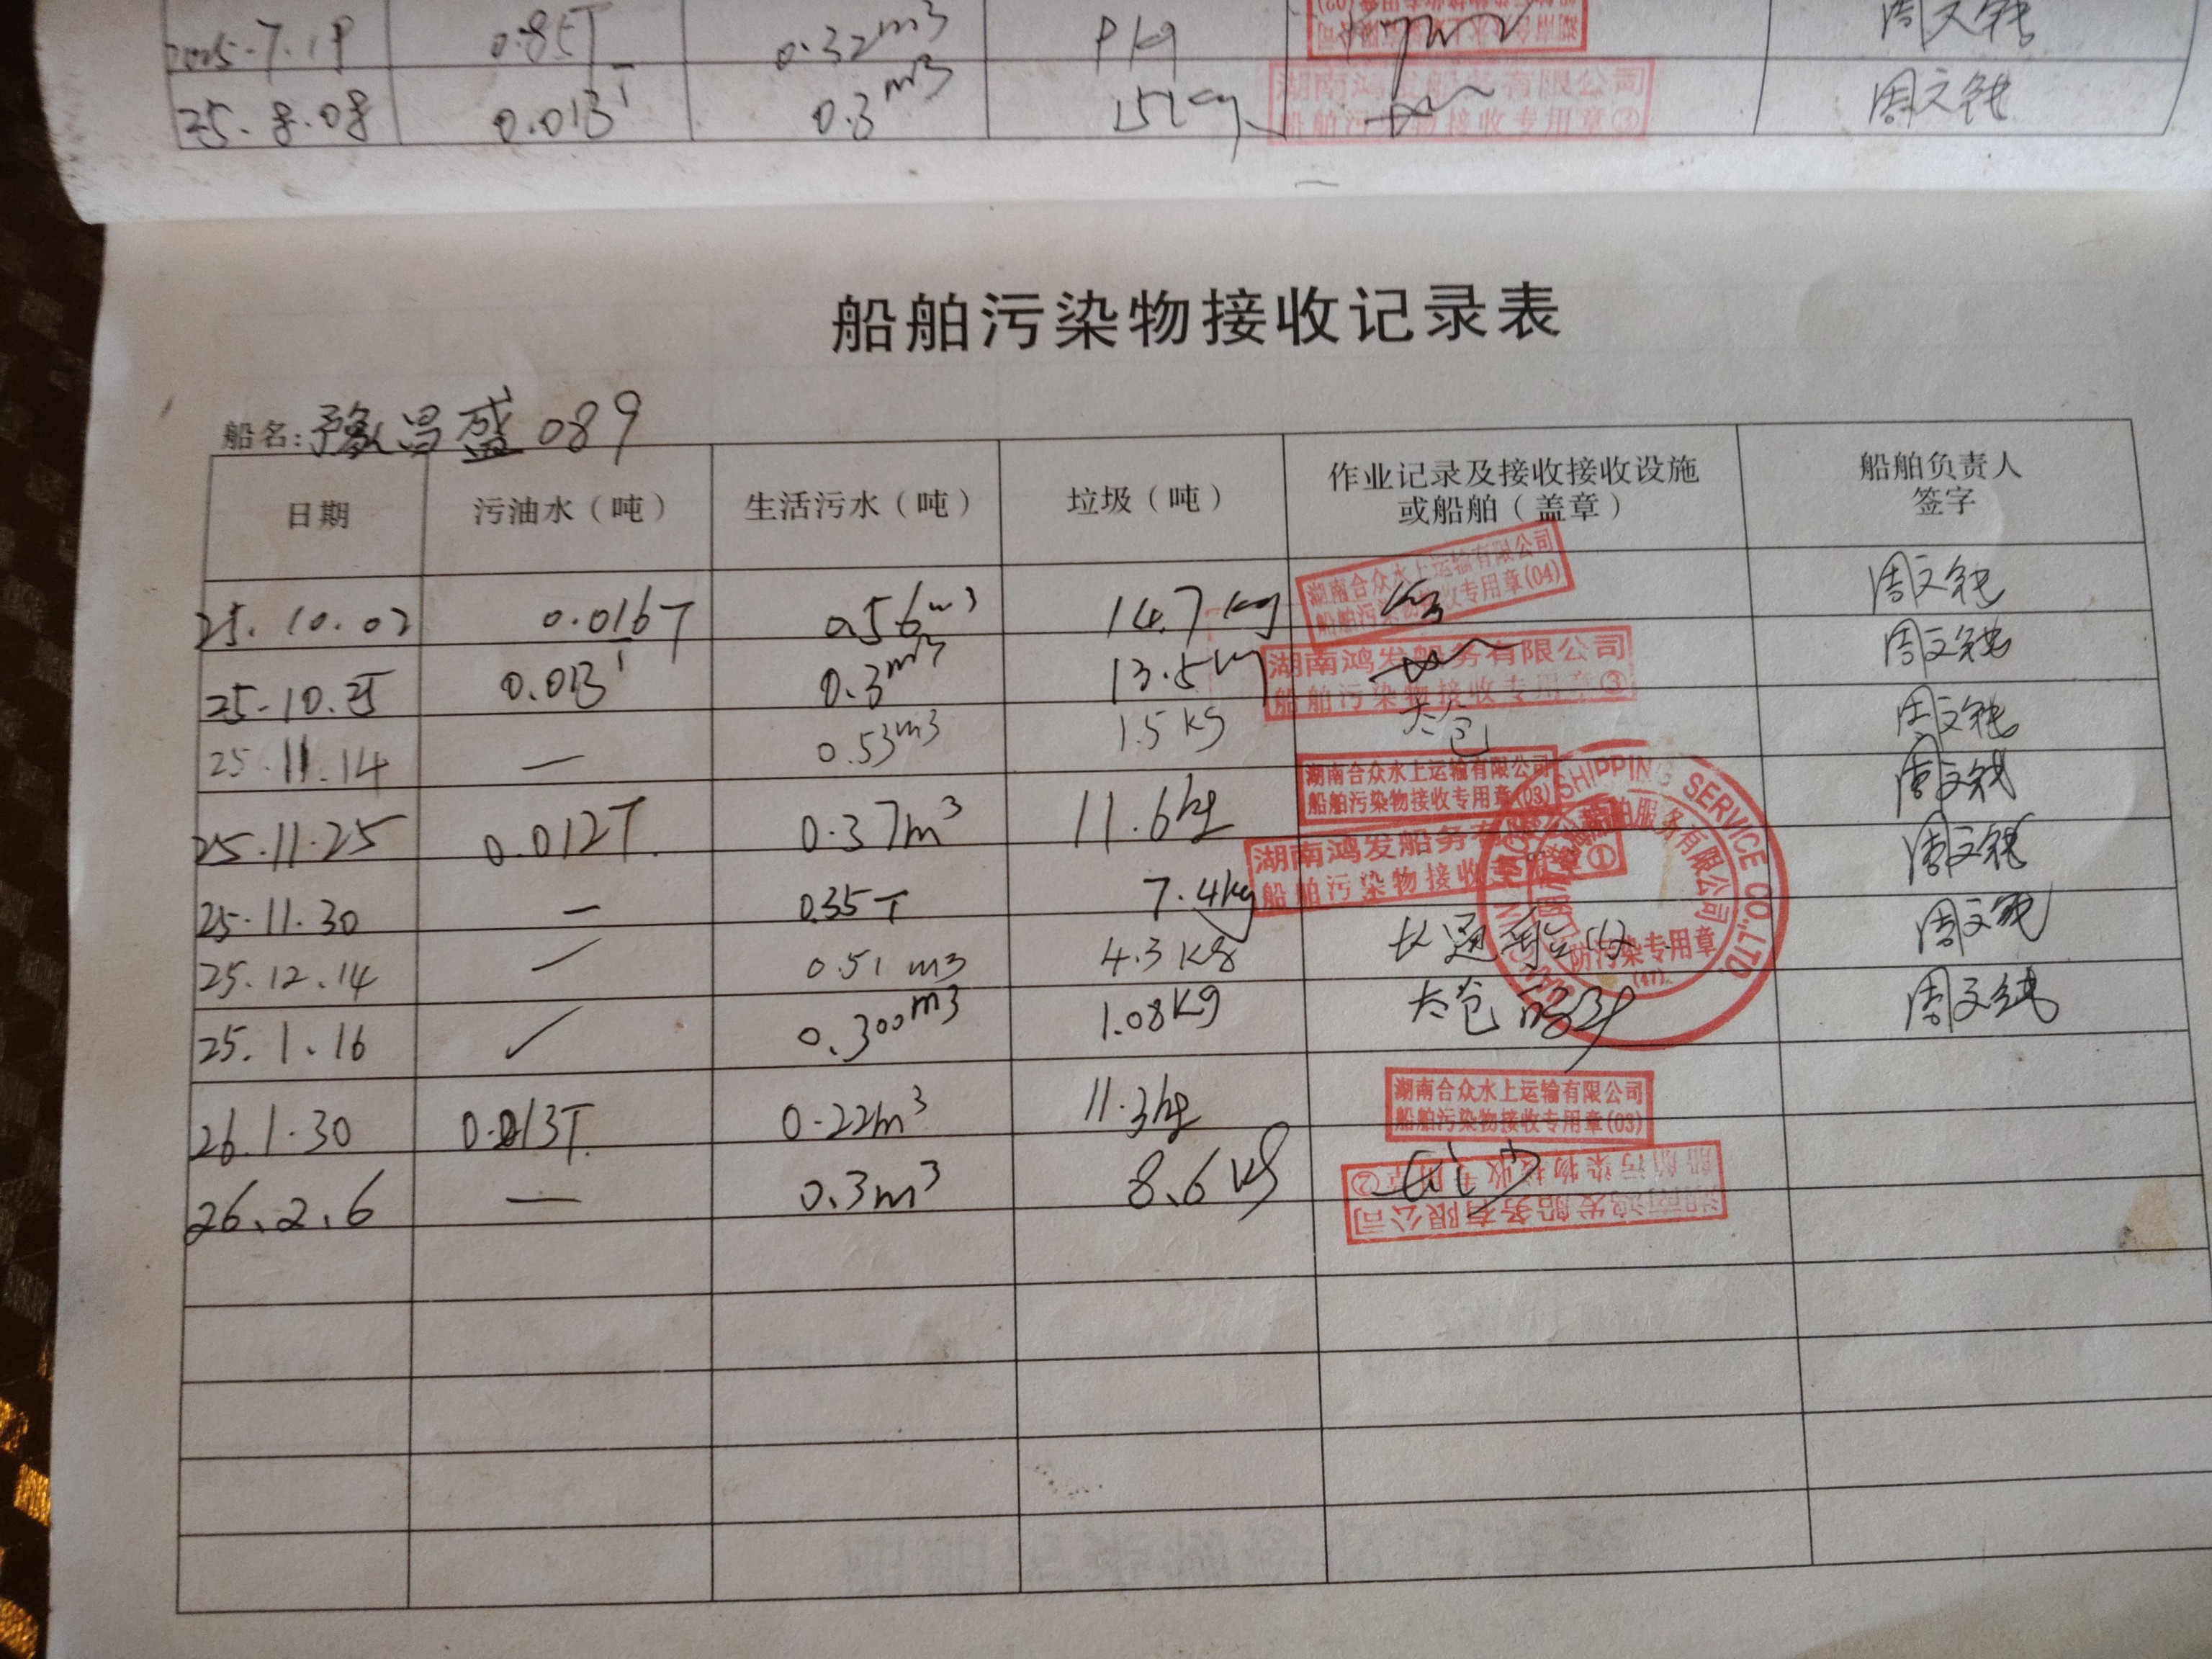 0.85T 0.32m3
25.8.08 0.013T 0.3m3 15kg 湖南鸿发船务有限公司 周文钝
船舶污染物接收专用章
船舶污染物接收记录表
船名:豫昌盛089
日期 污油水（吨） 生活污水（吨） 垃圾（吨） 作业记录及接收接收设施或船舶（盖章） 船舶负责人签字
湖南合众水上运输有限公司
船舶污染物接收专用章(04)
25.10.02 0.016T 0.56m3 14.7kg 周文钝
湖南鸿发船务有限公司
船舶污染物接收专用章③
25.10.25 0.013T 0.3m3 13.5kg 周文钝
25.11.14 — 0.53m3 1.5kg 太仓 周文钝
湖南合众水上运输有限公司
船舶污染物接收专用章(03)
25.11.25 0.012T. 0.37m3 11.6kg 周文钝
湖南鸿发船务有
船舶污染物接收 ①
25.11.30 — 0.35T 7.4kg 周文钝
SHIPPING SERVICE CO.,LTD
舶服务有限公司
防污染专用章
25.12.14 0.51m3 4.3kg 长通 周文钝
25.1.16 0.300m3 1.08kg 太仓 周文钝
湖南合众水上运输有限公司
船舶污染物接收专用章(03)
26.1.30 0.013T. 0.22m3 11.3kg
26.2.6 — 0.3m3 8.6kg
湖南鸿发船务有限公司
船舶污染物接收专用章②